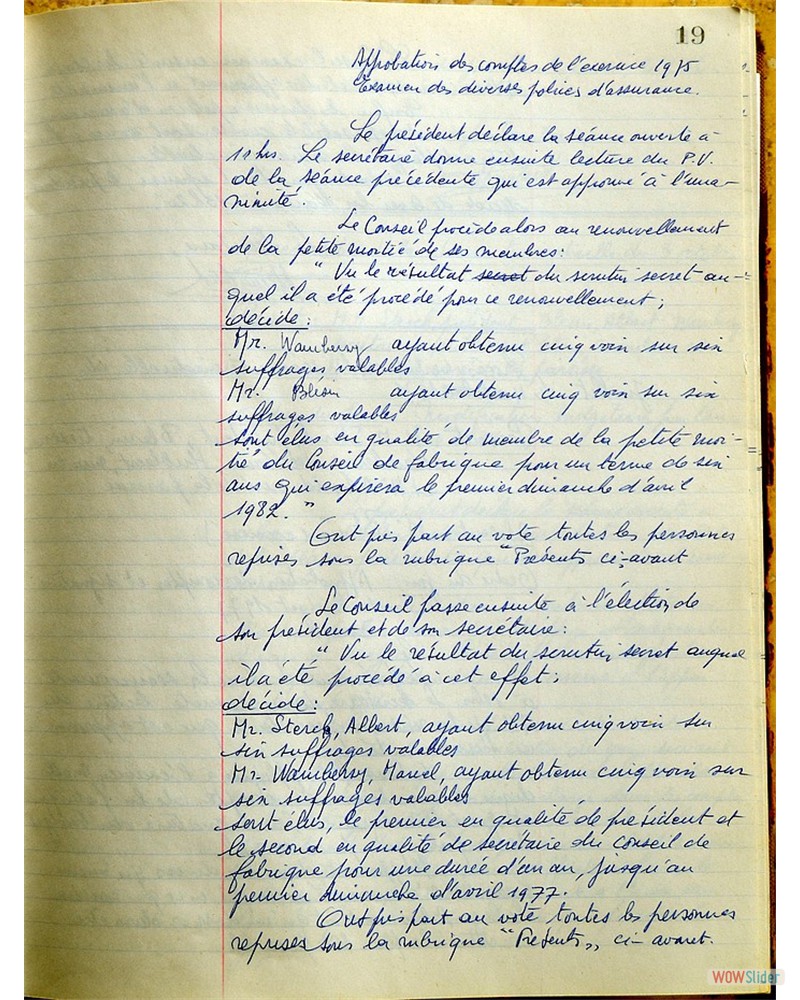 19
Approbation des comptes de l'exercice 1975
Examen des diverses polices d'assurance.
Le président déclare la séance ouverte à
11 hrs. Le secrétaire donne ensuite lecture du P.V.
de la séance précédente qui est approuvé à l'una-
nimité.
Le Conseil procède alors au renouvellement
de la petite moitié de ses membres:
" Vu le résultat secret du scrutin secret au-
quel il a été procédé pour ce renouvellement;
décide:
Mr. Wambersy ayant obtenu cinq voix sur six
suffrages valables
Mr. ayant obtenu cinq voix sur six
suffrages valables
sont élus en qualité de membre de la petite moi-
tié du Conseil de fabrique pour un terme de six
ans qui expirera le premier dimanche d'avril
1982. "
Ont pris part au vote toutes les personnes
reprises sous la rubrique "Présents ci-avant
Le Conseil passe ensuite à l'élection de
son président et de son secrétaire:
" Vu le résultat du scrutin secret auquel
il a été procédé à cet effet;
décide:
Mr. Sterck, Albert, ayant obtenu cinq voix sur
six suffrages valables
Mr. Wambersy, Marcel, ayant obtenu cinq voix sur
six suffrages valables
sont élus, le premier en qualité de président et
le second en qualité de secrétaire du Conseil de
fabrique pour une durée d'un an, jusqu'au
premier dimanche d'avril 1977.
Ont pris part au vote toutes les personnes
reprises sous la rubrique "Présents„ ci-avant.
WOWSlider